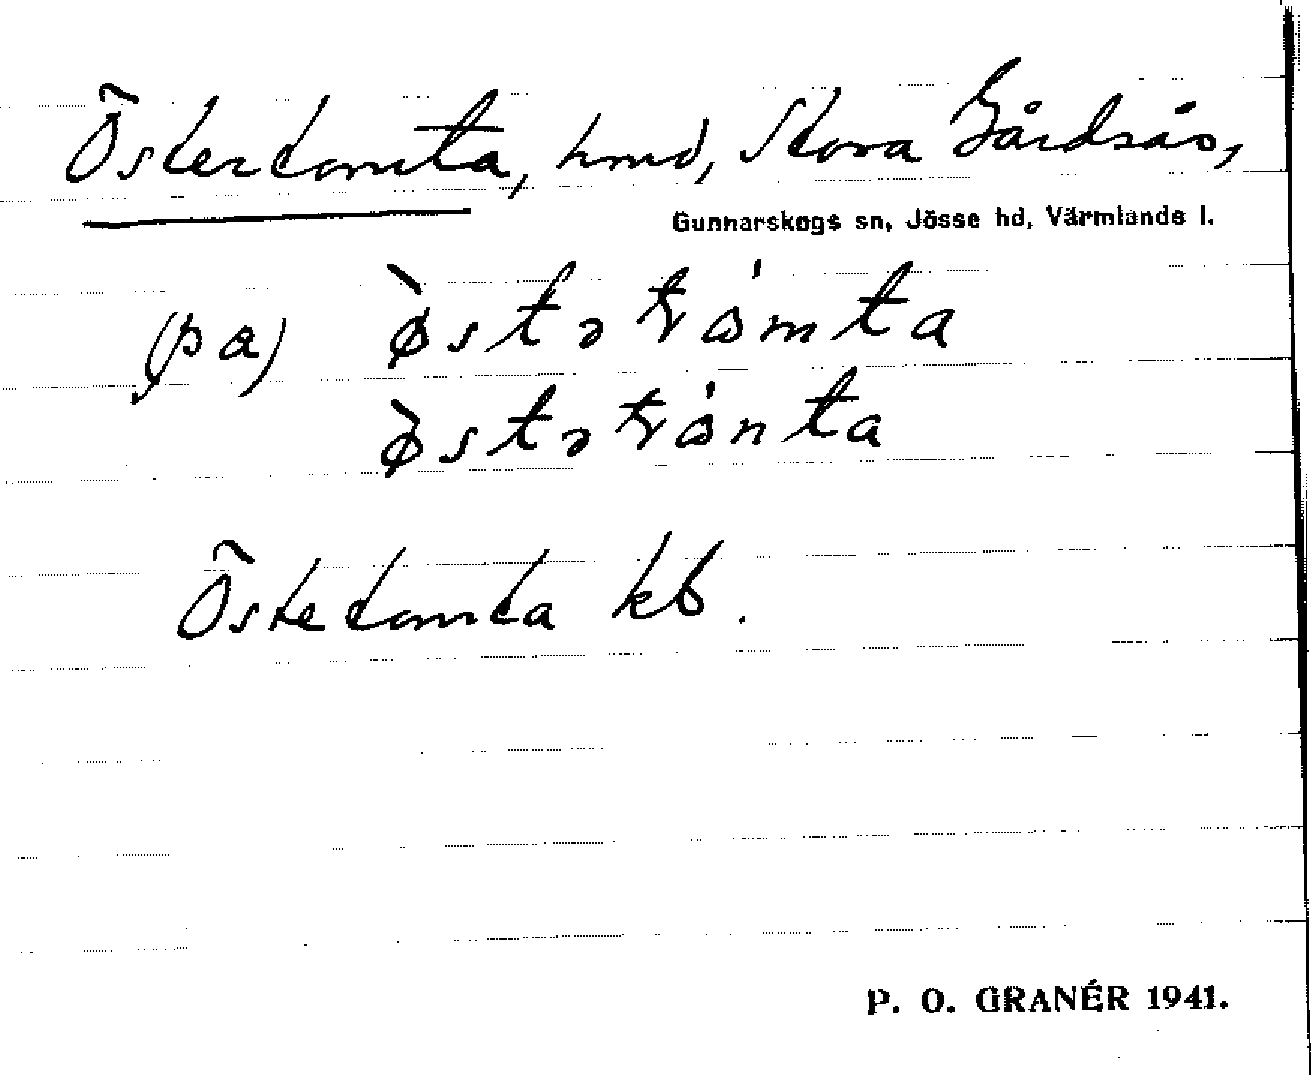 Östertomta, hmd, Stora Gårdsås,
Gunnarskogs sn, Jösse hd, Värmlands l.
(pa) ø̀stətómta
ø̀stətónta
Östetomta kb.
P. O. GRANÉR 1941.